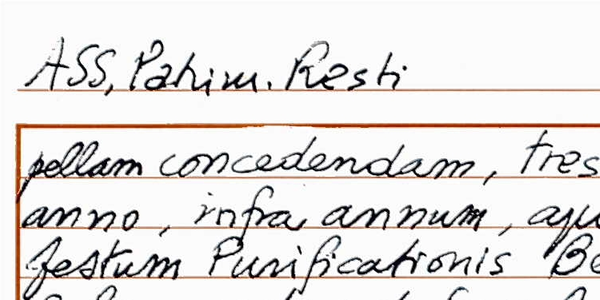 ASS, Patrim. Resti
pellam concedendam, tres
anno, infra annum,
festum Purificationis Be